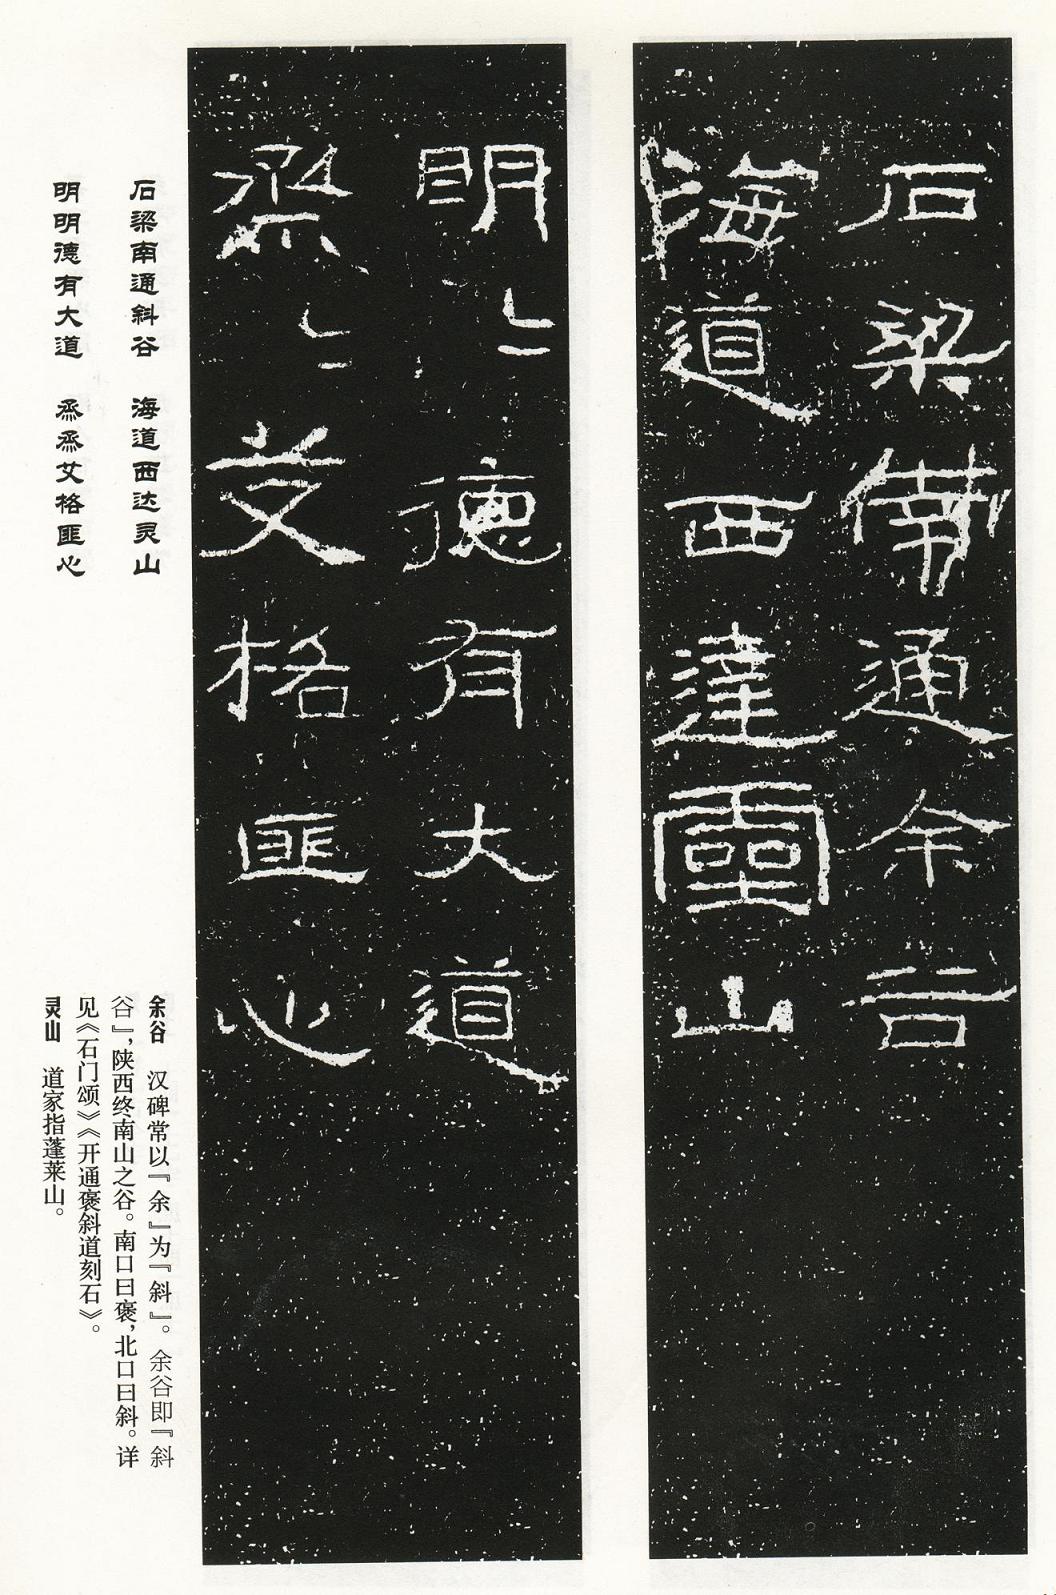 石梁南通余谷
海道西達靈山
明〻德有大道
烝〻艾格匪心
石梁南通斜谷 海道西达灵山
明明德有大道 烝烝艾格匪心
余谷 汉碑常以『余』为『斜』。余谷即『斜
谷』,陕西终南山之谷。南口曰褒,北口曰斜。详
见《石门颂》《开通褒斜道刻石》。
灵山 道家指蓬莱山。